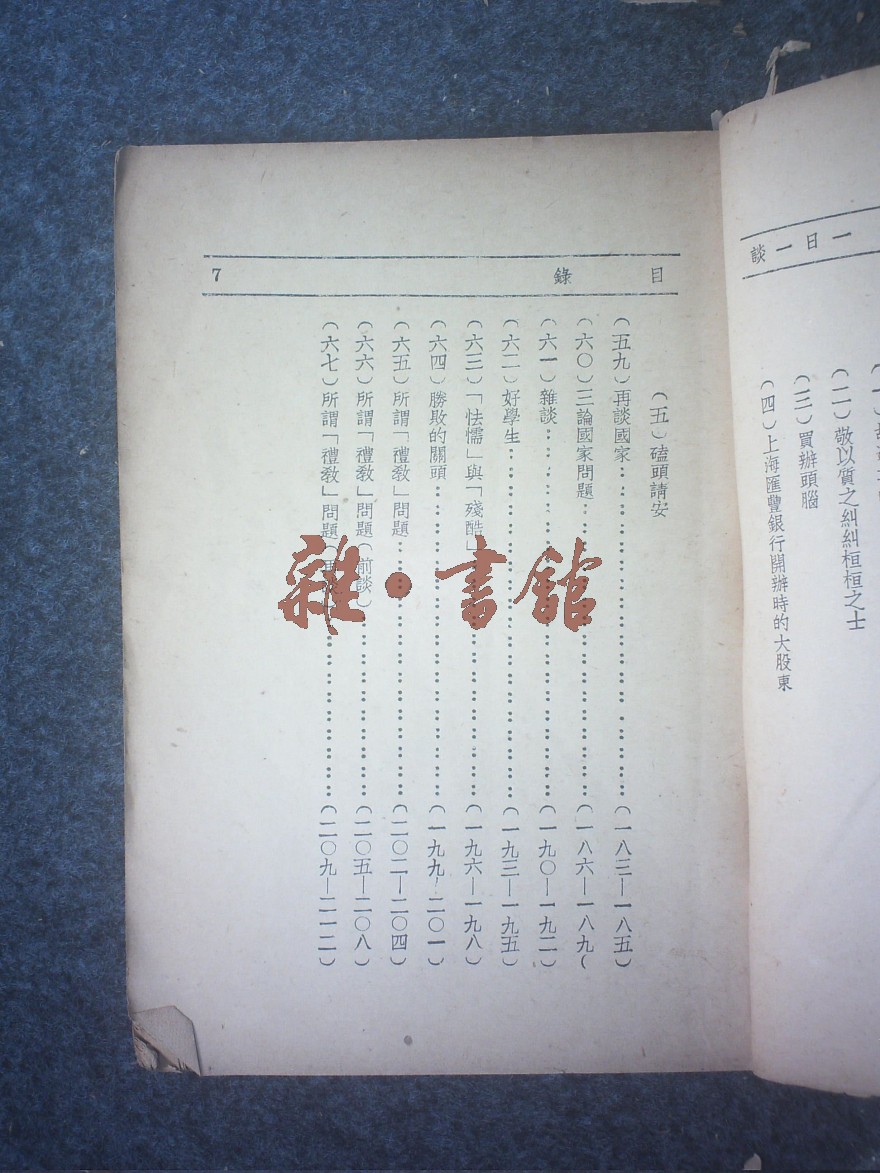 談一日一
(二)敬以質之糾糾桓桓之士
(三)買辦頭腦
(四)上海匯豐銀行開辦時的大股東
目錄 7
(五)磕頭請安
(五九)再談國家……(一八三—一八五)
(六〇)三論國家問題……(一八六—一八九(
(六一)雜談……(一九〇—一九二)
(六二)好學生……(一九三—一九五)
(六三)「怯懦」與「殘酷」……(一九六—一九八)
(六四)勝敗的關頭……(一九九—二〇一)
(六五)所謂「禮敎」問題……(二〇二—二〇四)
(六六)所謂「禮敎」問題(前談)……(二〇五—二〇八)
(六七)所謂「禮敎」問題……(二〇九—二一二)
雜·書館